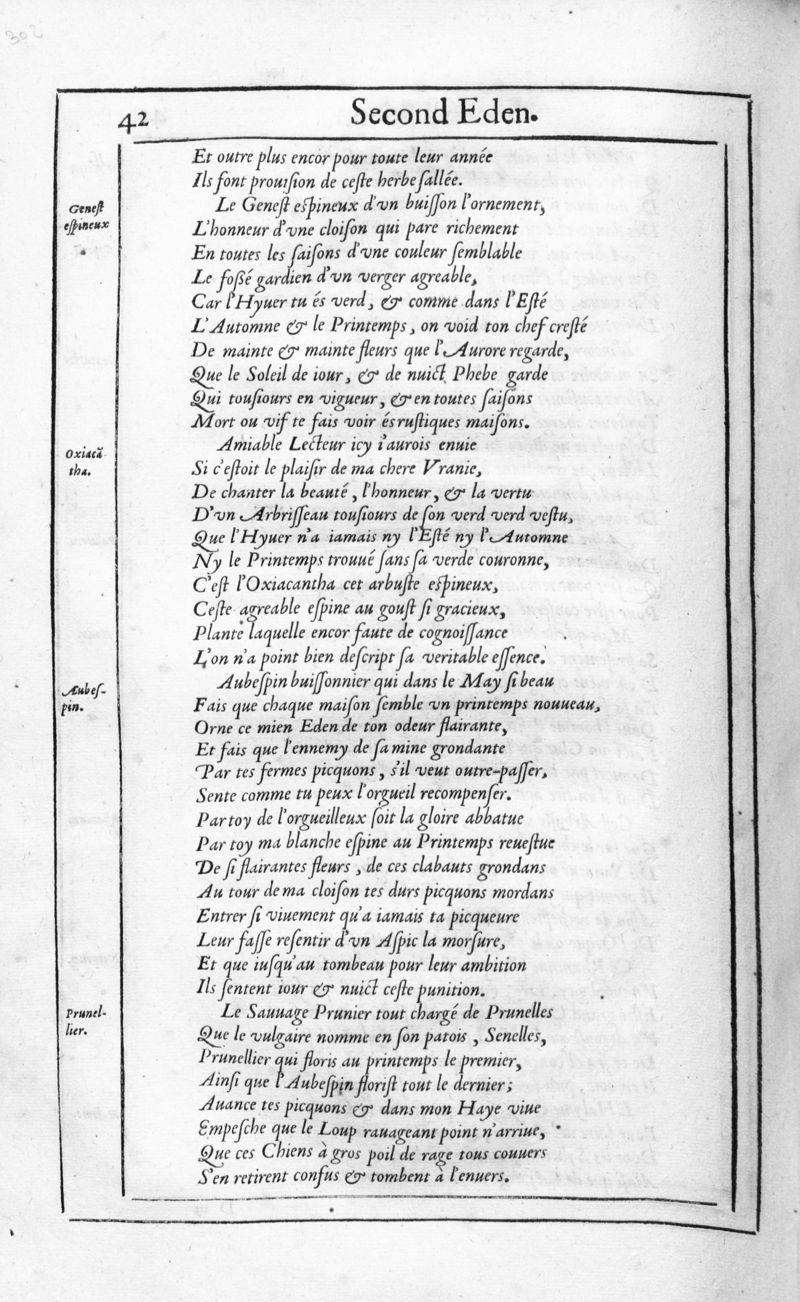 302
42 Second Eden.
Et outre plus encor pour toute leur année
Ils font prouision de ceste herbe sallée.
Genest
espineux
Le Genest espineux d'vn buisson l'ornement,
L'honneur d'vne cloison qui pare richement
En toutes les saisons d'vne couleur semblable
Le fossé gardien d'vn verger agreable,
Car l'Hyuer tu és verd, & comme dans l'Esté
L'Automne & le Printemps, on void ton chef cresté
De mainte & mainte fleurs que l'Aurore regarde,
Que le Soleil de iour, & de nuict Phebe garde
Qui tousiours en vigueur, & en toutes saisons
Mort ou vif te fais voir és rustiques maisons.
Oxiacã
tha.
Amiable Lecteur icy i'aurois enuie
Si c'estoit le plaisir de ma chere Vranie,
De chanter la beauté, l'honneur, & la vertu
D'vn Arbrisseau tousiours de son verd verd vestu,
Que l'Hyuer n'a iamais ny l'Esté ny l'Automne
Ny le Printemps trouué sans sa verde couronne,
C'est l'Oxiacantha cet arbuste espineux,
Ceste agreable espine au goust si gracieux,
Plante laquelle encor faute de cognoissance
L'on n'a point bien descript sa veritable essence.
Aubes-
pin.
Aubespin buissonnier qui dans le May si beau
Fais que chaque maison semble vn printemps nouueau,
Orne ce mien Eden de ton odeur flairante,
Et fais que l'ennemy de sa mine grondante
Par tes fermes picquons, s'il veut outre-passer,
Sente comme tu peux l'orgueil recompenser.
Par toy de l'orgueilleux soit la gloire abbatue
Par toy ma blanche espine au Printemps reuestue
De si flairantes fleurs, de ces clabauts grondans
Au tour de ma cloison tes durs picquons mordans
Entrer si viuement qu'a iamais ta picqueure
Leur fasse resentir d'vn Aspic la morsure,
Et que iusqu'au tombeau pour leur ambition
Ils sentent iour & nuict ceste punition.
Prunel-
lier.
Le Sauuage Prunier tout chargé de Prunelles
Que le vulgaire nomme en son patois, Senelles,
Prunellier qui floris au printemps le premier,
Ainsi que l'Aubespin florist tout le dernier;
Auance tes picquons & dans mon Haye viue
Empesche que le Loup rauageant point n'arriue,
Que ces Chiens à gros poil de rage tous couuers
S'en retirent confus & tombent à l'enuers.